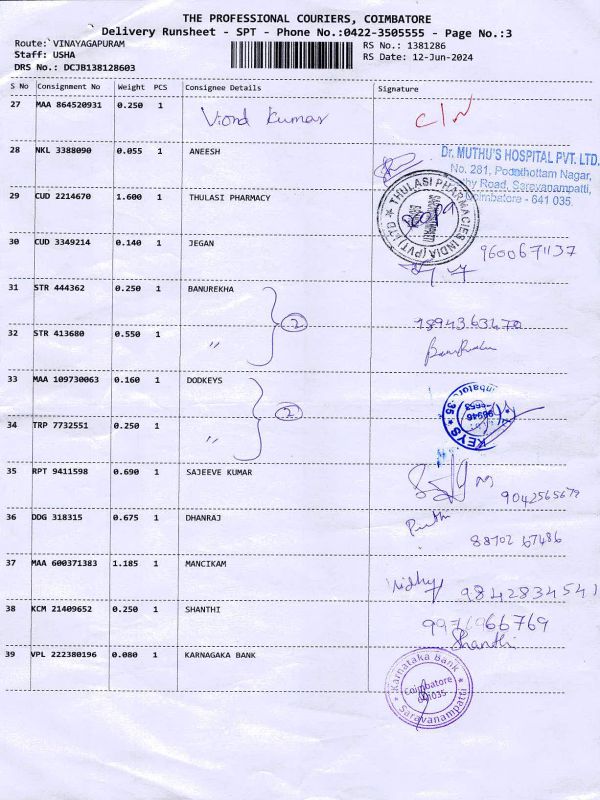 THE PROFESSIONAL COURIERS, COIMBATORE
Delivery Runsheet - SPT - Phone No.:0422-3505555 - Page No.:3
Route: VINAYAGAPURAM
Staff: USHA
DRS No.: DCJB138128603
RS No.: 1381286
RS Date: 12-Jun-2024
S No Consignment No Weight PCS Consignee Details Signature
27 MAA 864520931 0.250 1 Vinod Kumar
28 NKL 3388090 0.055 1 ANEESH
Dr. MUTHU'S HOSPITAL PVT. LTD.
No. 281, Poduthottam Nagar,
Road, Saravanampatti,
Coimbatore - 641 035
29 CUD 2214670 1.600 1 THULASI PHARMACY
THULASI PHARMACIES INDIA (PVT) LTD
30 CUD 3349214 0.140 1 JEGAN 9600671137
31 STR 444362 0.250 1 BANUREKHA
2
32 STR 413680 0.550 1 "
33 MAA 109730063 0.160 1 DODKEYS
2
KEYS
34 TRP 7732551 0.250 1 "
35 RPT 9411598 0.690 1 SAJEEVE KUMAR
36 DDG 318315 0.675 1 DHANRAJ
88702 67486
37 MAA 600371383 1.185 1 MANCIKAM
9842834541
38 KCM 21409652 0.250 1 SHANTHI
9976966769
Shanthi
39 VPL 222380196 0.080 1 KARNAGAKA BANK
Karnataka Bank
Coimbatore
641035
Saravanampatti